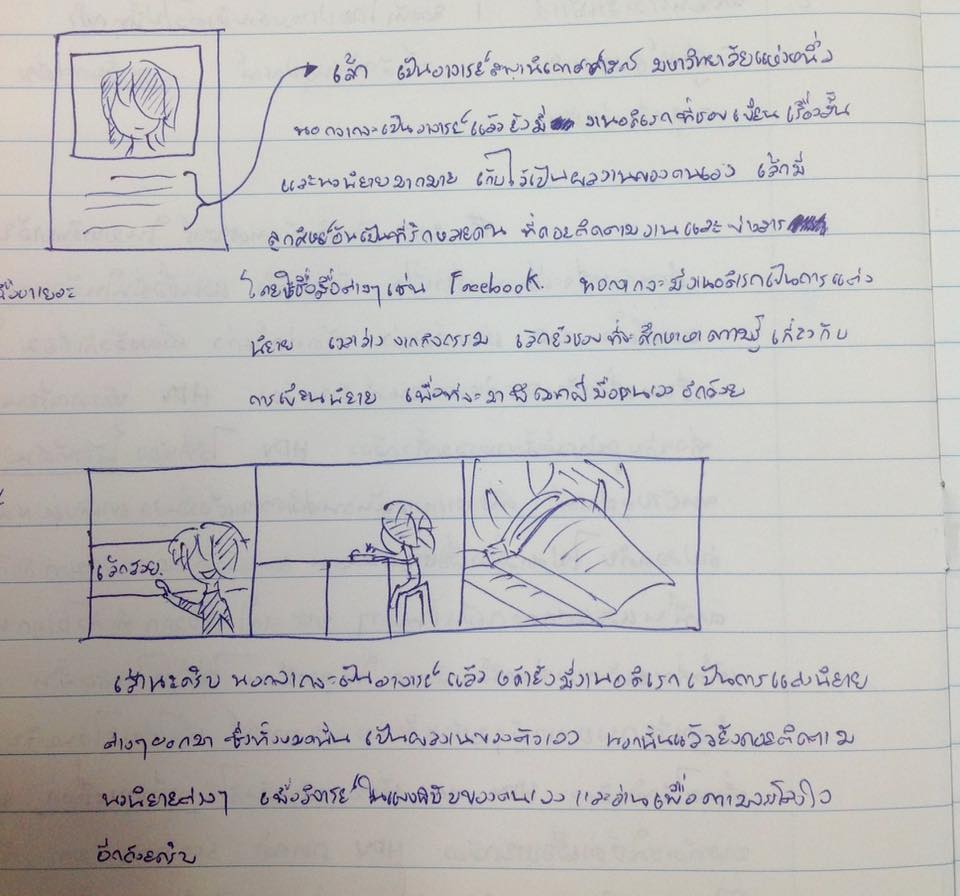 เล้ก เป็นอาจารย์คณะนิเทศศาสตร์ มหาวิทยาลัยแห่งหนึ่ง
นอกจากจะเป็นอาจารย์แล้วยังมี งานอดิเรกที่ชอบเขียน เรื่องสั้น
และนวนิยายมากมาย เก็บไว้เป็นผลงานของตนเอง เล้กมี
ลูกศิษย์อันเป็นที่รักหลายคน ที่คอยติดตามงานและข่าวสาร
โดยใช้สื่อต่างๆ เช่น Facebook. นอกจากจะมีงานอดิเรกเป็นการแต่ง
นิยาย เวลาว่างจากกิจกรรม เล้กยังชอบที่จะศึกษาหาความรู้ เกี่ยวกับ
การเขียนนิยาย เพื่อที่จะมาพัฒนาฝีมือตนเองอีกด้วย
เล้กสวย.
นอกจากจะเป็นอาจารย์ แล้ว เค้ายังมีงานอดิเรก เป็นการแต่งนิยาย
ต่างๆออกมา ซึ่งทั้งหมดนั้น เป็นผลงานของตัวเอง นอกนั้นแล้วยังคอยติดตาม
นวนิยายต่างๆ เพื่อวิจารย์ ในแบบฉบับของตนเอง และอ่านเพื่อความจรรโลงใจ
อีกด้วยครับ